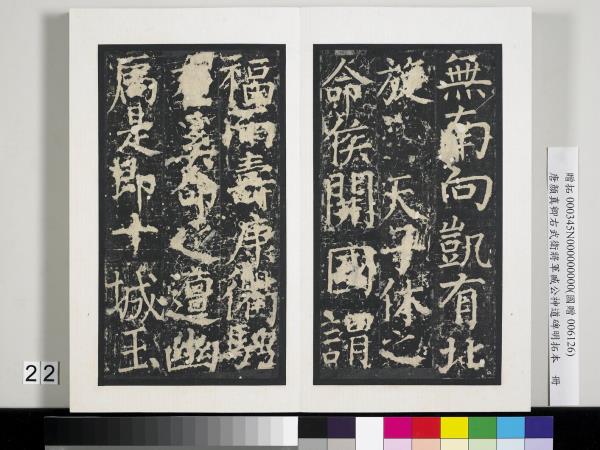 無南向凱有北
旋天子休之
命侯開國謂
福而壽康備
命之邅幽
是即十城玉
贈拓 000345N000000000(國贈 006126)
唐顏真卿右武衛將軍臧公神道碑明拓本 冊
22